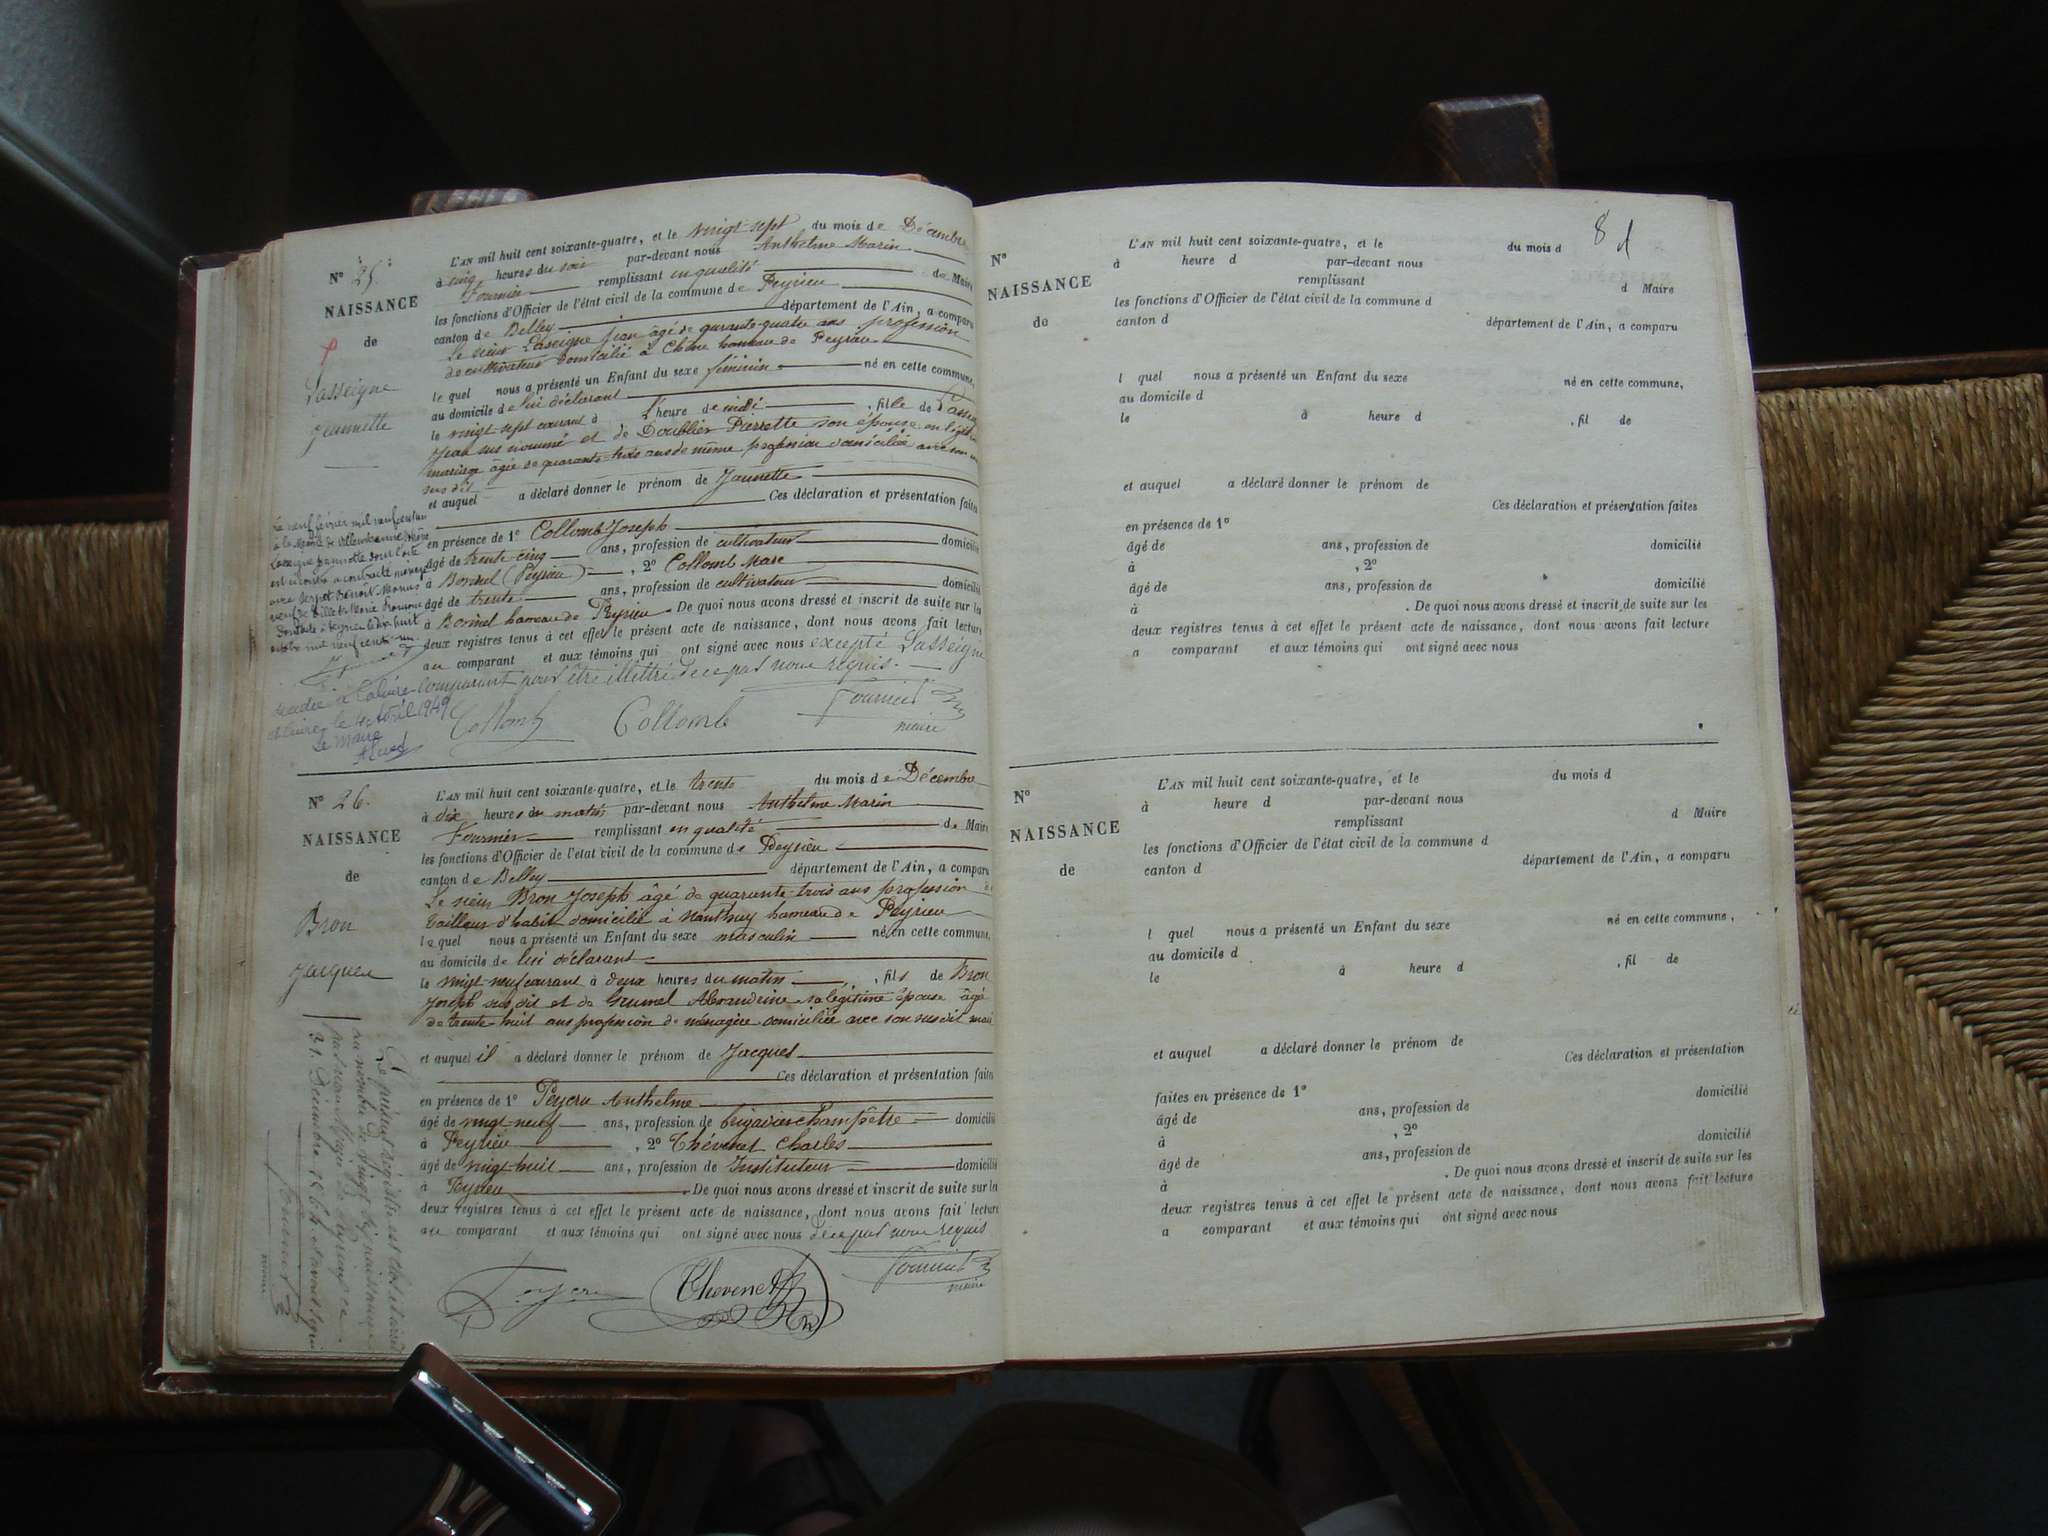 N° 25.
NAISSANCE
de
Lasseigne
Jeannette
L'AN mil huit cent soixante-quatre, et le vingt-sept du mois de Décembre
à cinq heures du soir par-devant nous Anthelme Marin
Fournier remplissant en qualité de Maire
les fonctions d'Officier de l'état civil de la commune de Peyrieu
canton de Belley département de l'Ain, a comparu
Le sieur Lasseigne Jean âgé de quarante-quatre ans profession
de cultivateur domicilié à Chêne hameau de Peyrieu
le quel nous a présenté un Enfant du sexe féminin né en cette commune,
au domicile de lui déclarant
le vingt sept courant à l'heure de midi, fille de
Jean sus nommé et de Doublier Pierrette son épouse en
mariage âgée de quarante-trois ans de même profession domiciliée avec son
sus dit
et auquel a déclaré donner le prénom de Jeannette
Ces déclaration et présentation faites
en présence de 1° Collomb Joseph
âgé de trente-cinq ans, profession de cultivateur domicilié
à (Peyrieu), 2° Collomb Marc
âgé de trente ans, profession de cultivateur domicilié
à hameau de Peyrieu. De quoi nous avons dressé et inscrit de suite sur les
deux registres tenus à cet effet le présent acte de naissance, dont nous avons fait lecture
au comparant et aux témoins qui ont signé avec nous excepté Lasseigne
comparant pour être illettré de ce par nous requis.
Collomb Collomb Fournier
maire
Le neuf février mil neuf cent un
à la Mairie de Villeurbanne Rhône
Lasseigne Jeannette dont l'acte
est ci contre a contracté mariage
avec Benoît
le 4 Avril 1949
Le Maire
N° 26.
NAISSANCE
de
Bron
Jacques
L'AN mil huit cent soixante-quatre, et le trente du mois de Décembre
à dix heures du matin par-devant nous Anthelme Marin
Fournier remplissant en qualité de Maire
les fonctions d'Officier de l'état civil de la commune de Peyrieu
canton de Belley département de l'Ain, a comparu
Le sieur Bron Joseph âgé de quarante-trois ans profession de
tailleur d'habit domicilié à Nanthuy hameau de Peyrieu
le quel nous a présenté un Enfant du sexe masculin né en cette commune,
au domicile de lui déclarant
le vingt-neuf courant à deux heures du matin, fils de Bron
Joseph sus dit et de Grumel Alexandrine sa légitime épouse âgé
de trente huit ans profession de ménagère domiciliée avec son susdit mari
et auquel il a déclaré donner le prénom de Jacques
Ces déclaration et présentation faites
en présence de 1° Peycru Anthelme
âgé de vingt-neuf ans, profession de brigadier champêtre domicilié
à Peyrieu, 2° Thévenet Charles
âgé de vingt-huit ans, profession de Instituteur domicilié
à Peyrieu. De quoi nous avons dressé et inscrit de suite sur les
deux registres tenus à cet effet le présent acte de naissance, dont nous avons fait lecture
au comparant et aux témoins qui ont signé avec nous de ce par nous requis
Thevenet Fournier
maire
Le présent registre est clos et arrêté
au nombre de vingt six naissances
par nous Maire de Peyrieu ce
31 Décembre 1864
Fournier
maire
8
N°
NAISSANCE
de
L'AN mil huit cent soixante-quatre, et le du mois d
à heure d par-devant nous
remplissant d Maire
les fonctions d'Officier de l'état civil de la commune d
canton d département de l'Ain, a comparu
l quel nous a présenté un Enfant du sexe né en cette commune,
au domicile d
le à heure d , fil de
et auquel a déclaré donner le prénom de
Ces déclaration et présentation faites
en présence de 1°
âgé de ans, profession de domicilié
à , 2°
âgé de ans, profession de domicilié
à . De quoi nous avons dressé et inscrit de suite sur les
deux registres tenus à cet effet le présent acte de naissance, dont nous avons fait lecture
a comparant et aux témoins qui ont signé avec nous
N°
NAISSANCE
de
L'AN mil huit cent soixante-quatre, et le du mois d
à heure d par-devant nous
remplissant d Maire
les fonctions d'Officier de l'état civil de la commune d
canton d département de l'Ain, a comparu
l quel nous a présenté un Enfant du sexe né en cette commune,
au domicile d
le à heure d , fil de
et auquel a déclaré donner le prénom de
Ces déclaration et présentation
faites en présence de 1°
âgé de ans, profession de domicilié
à , 2°
âgé de ans, profession de domicilié
à . De quoi nous avons dressé et inscrit de suite sur les
deux registres tenus à cet effet le présent acte de naissance, dont nous avons fait lecture
a comparant et aux témoins qui ont signé avec nous